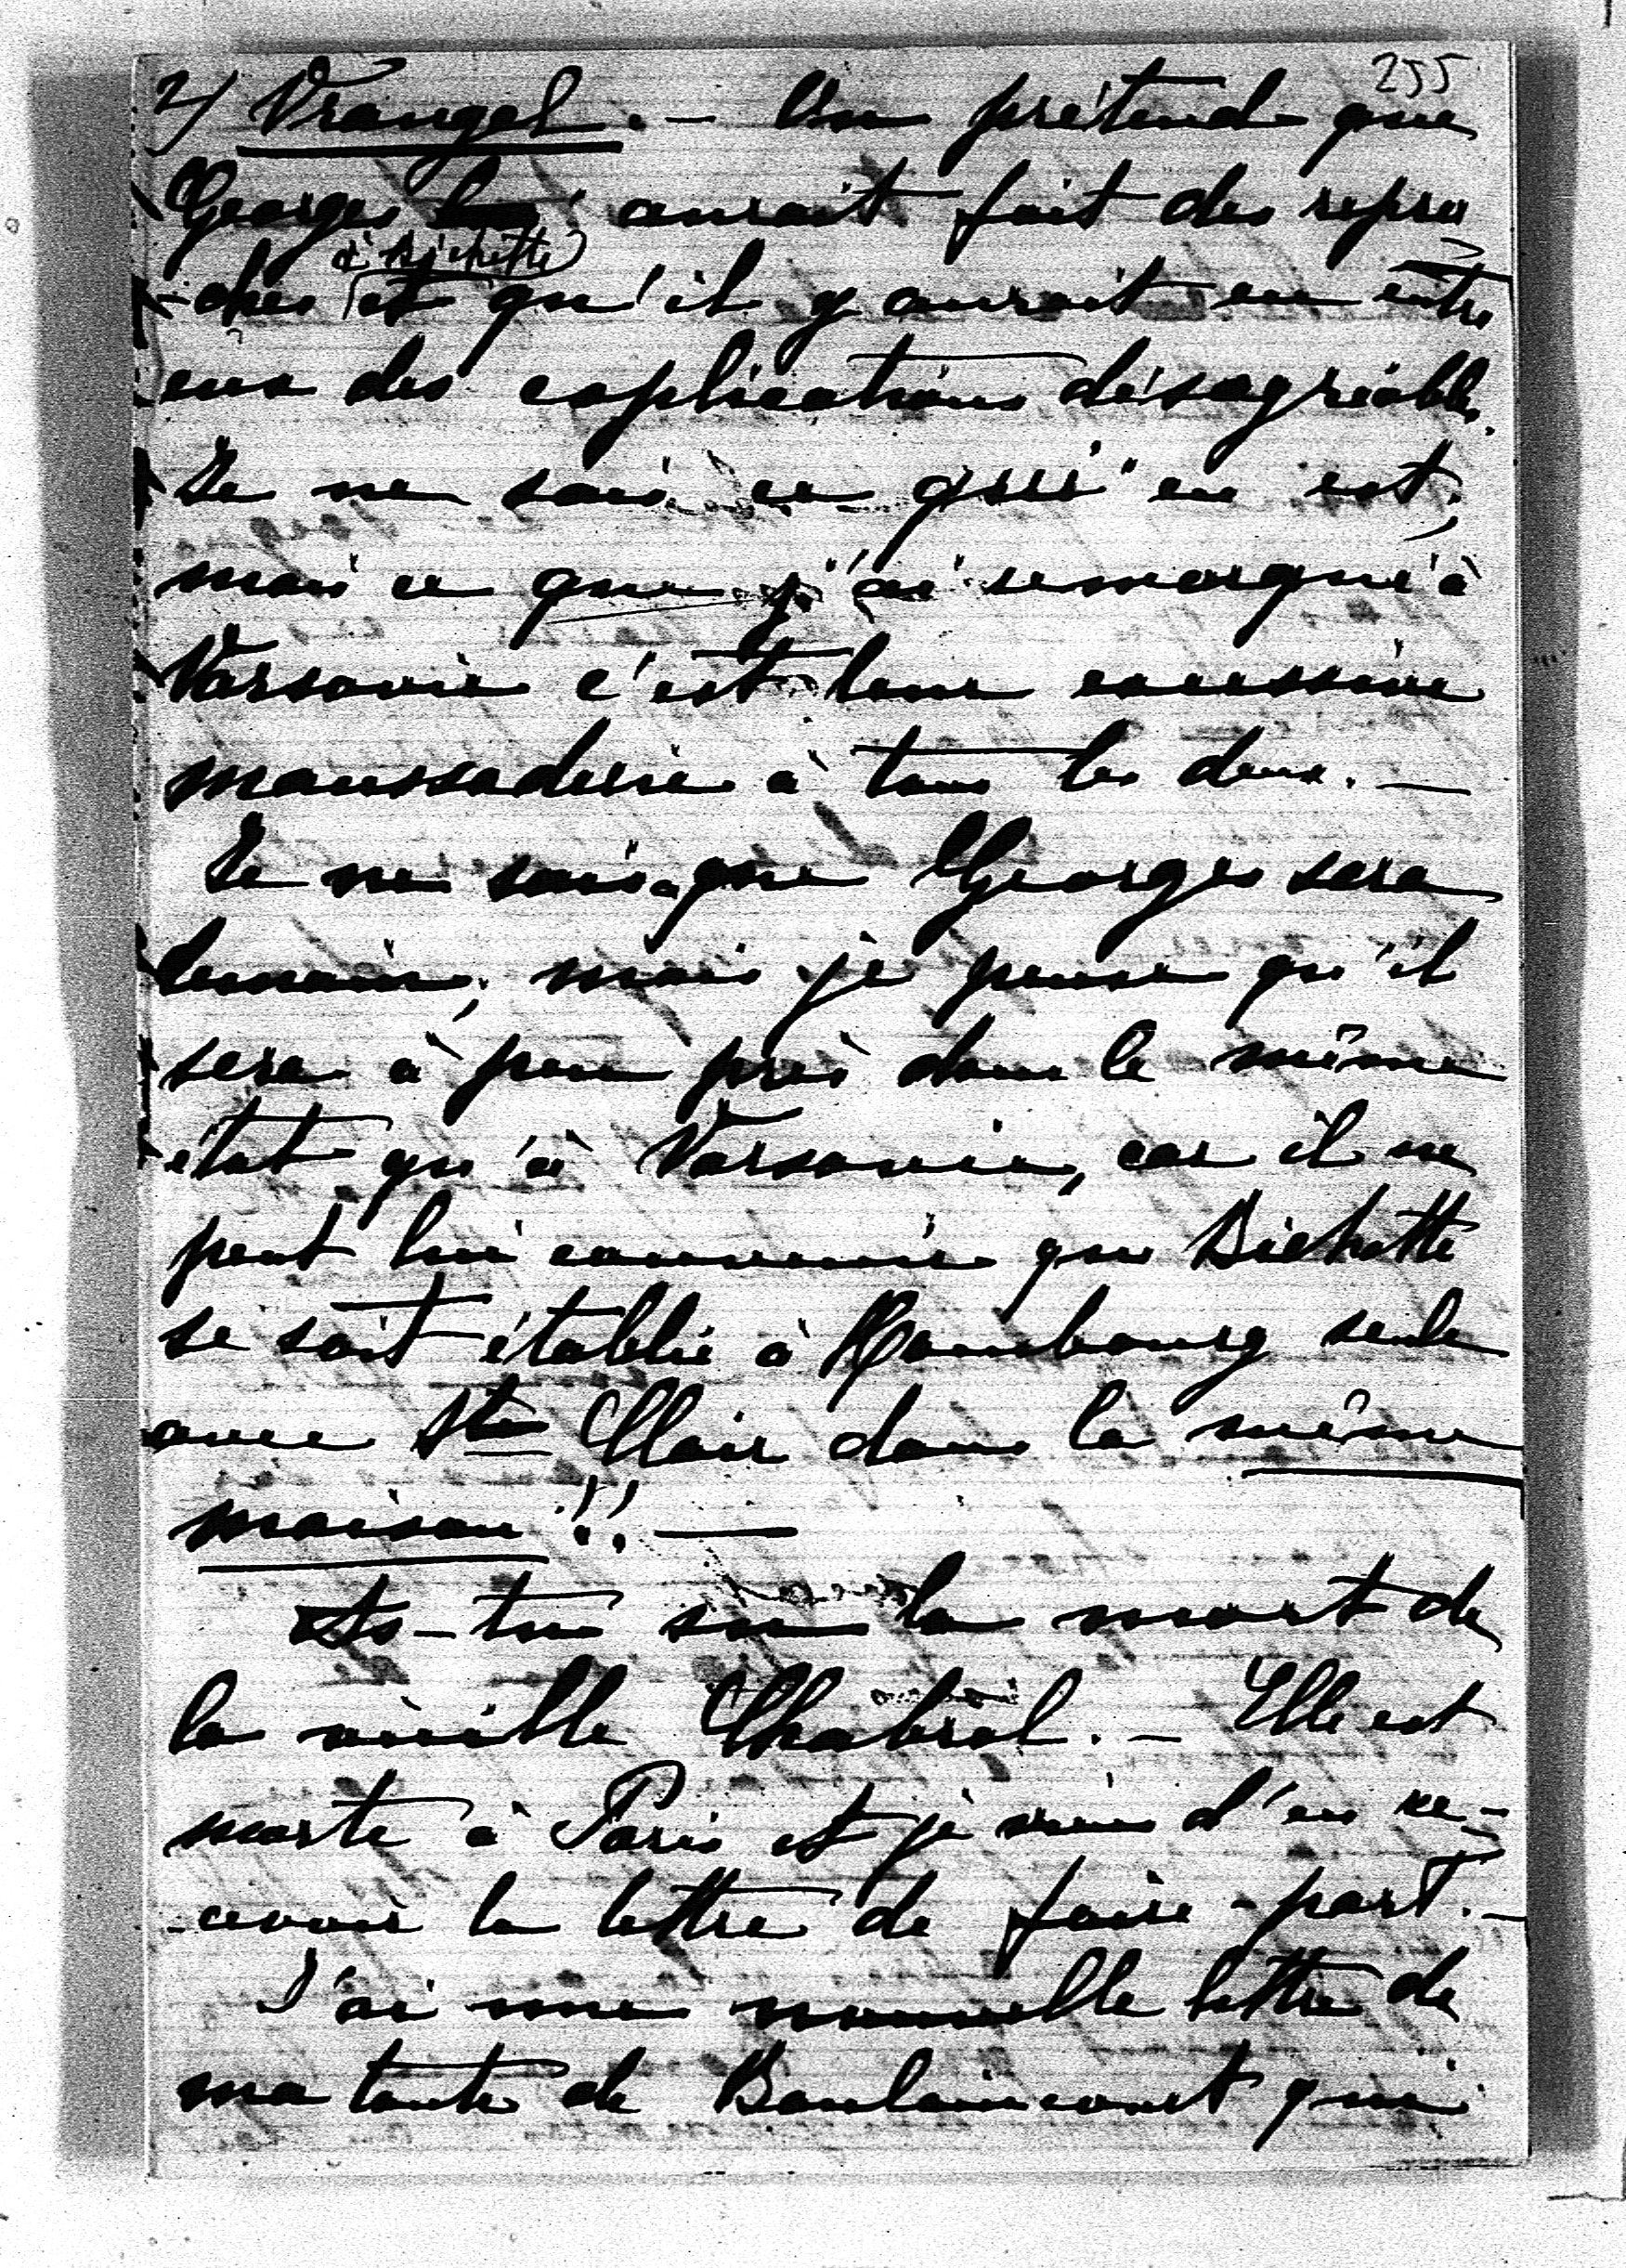 255
2/ Vrangel. – On prétend que
Georges aurait fait des repro
à Bichette
-ches et qu'il y aurait eu entre
eux des explications désagréables.
Je ne sais ce qui en est,
mais ce que j'ai remarqué à
Varsovie c'est leur excessive
maussaderie à tous les deux. –
Je ne sais que Georges sera
demain, mais je pense qu'il
sera à peu près dans le même
état qu'à Varsovie, car il ne
peut lui convenir que Bichette
se soit établie à Hombourg seule
avec Ste Clair dans la même
maison!! –
As-tu su la mort de
la vieille Chabrol. – Elle est
morte à Paris et je viens d'en re-
-cevoir la lettre de faire-part. –
J'ai une nouvelle lettre de
ma tante de Baulaincourt qui